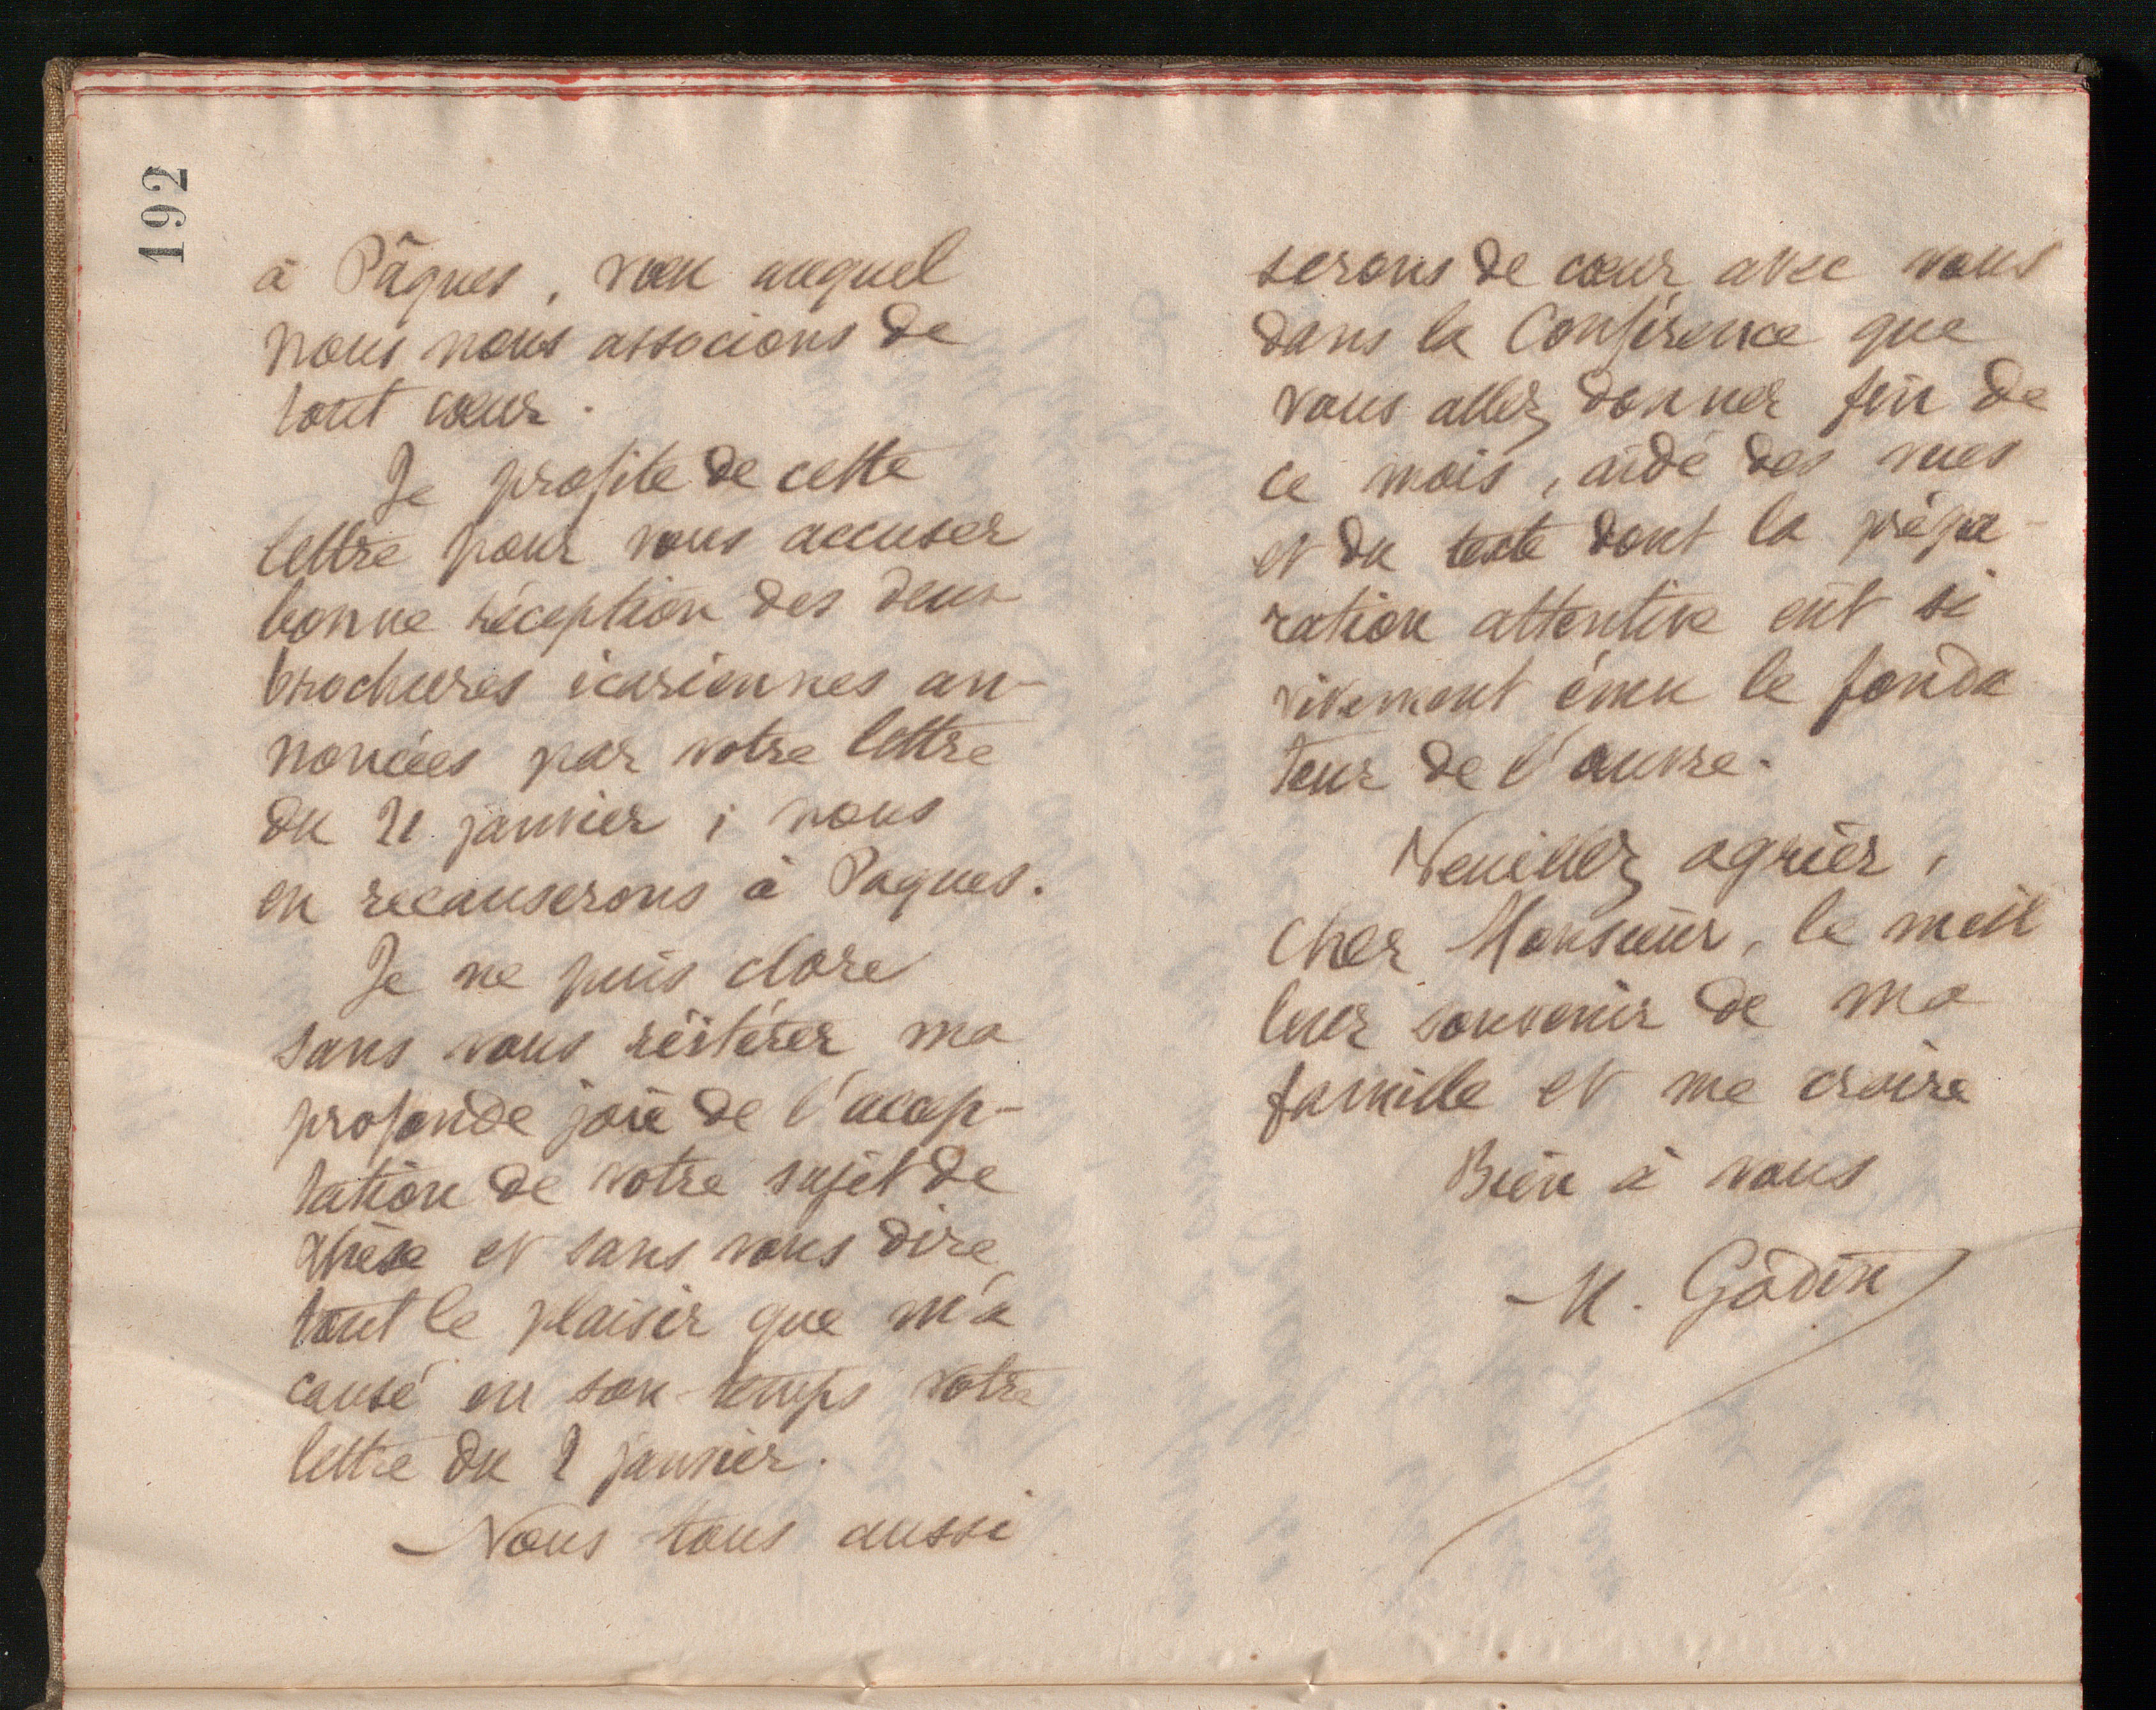 192
à Pâques, vœu auquel
nous nous associons de
tout cœur.
Je profite de cette
lettre pour vous accuser
bonne réception des deux
brochures icariennes an-
noncées par votre lettre
du 21 janvier ; nous
en recauserons à Paques.
Je ne puis clore
sans vous réitérer ma
profonde joie de l'accep-
tation de votre sujet de
thèse et sans vous dire
tout le plaisir que m'a
causé en son temps votre
lettre du 2 janvier.
Nous tous aussi
serons de cœur avec vous
dans la Conférence que
vous allez donner fin de
ce mois, aidé des vues
et du texte dont la prépa-
ration attentive eût si
vivement ému le fonda
teur de l'œuvre.
Veuillez agréer,
cher Monsieur, le meil
leur souvenir de ma
famille et me croire
Bien à vous
M. Godin